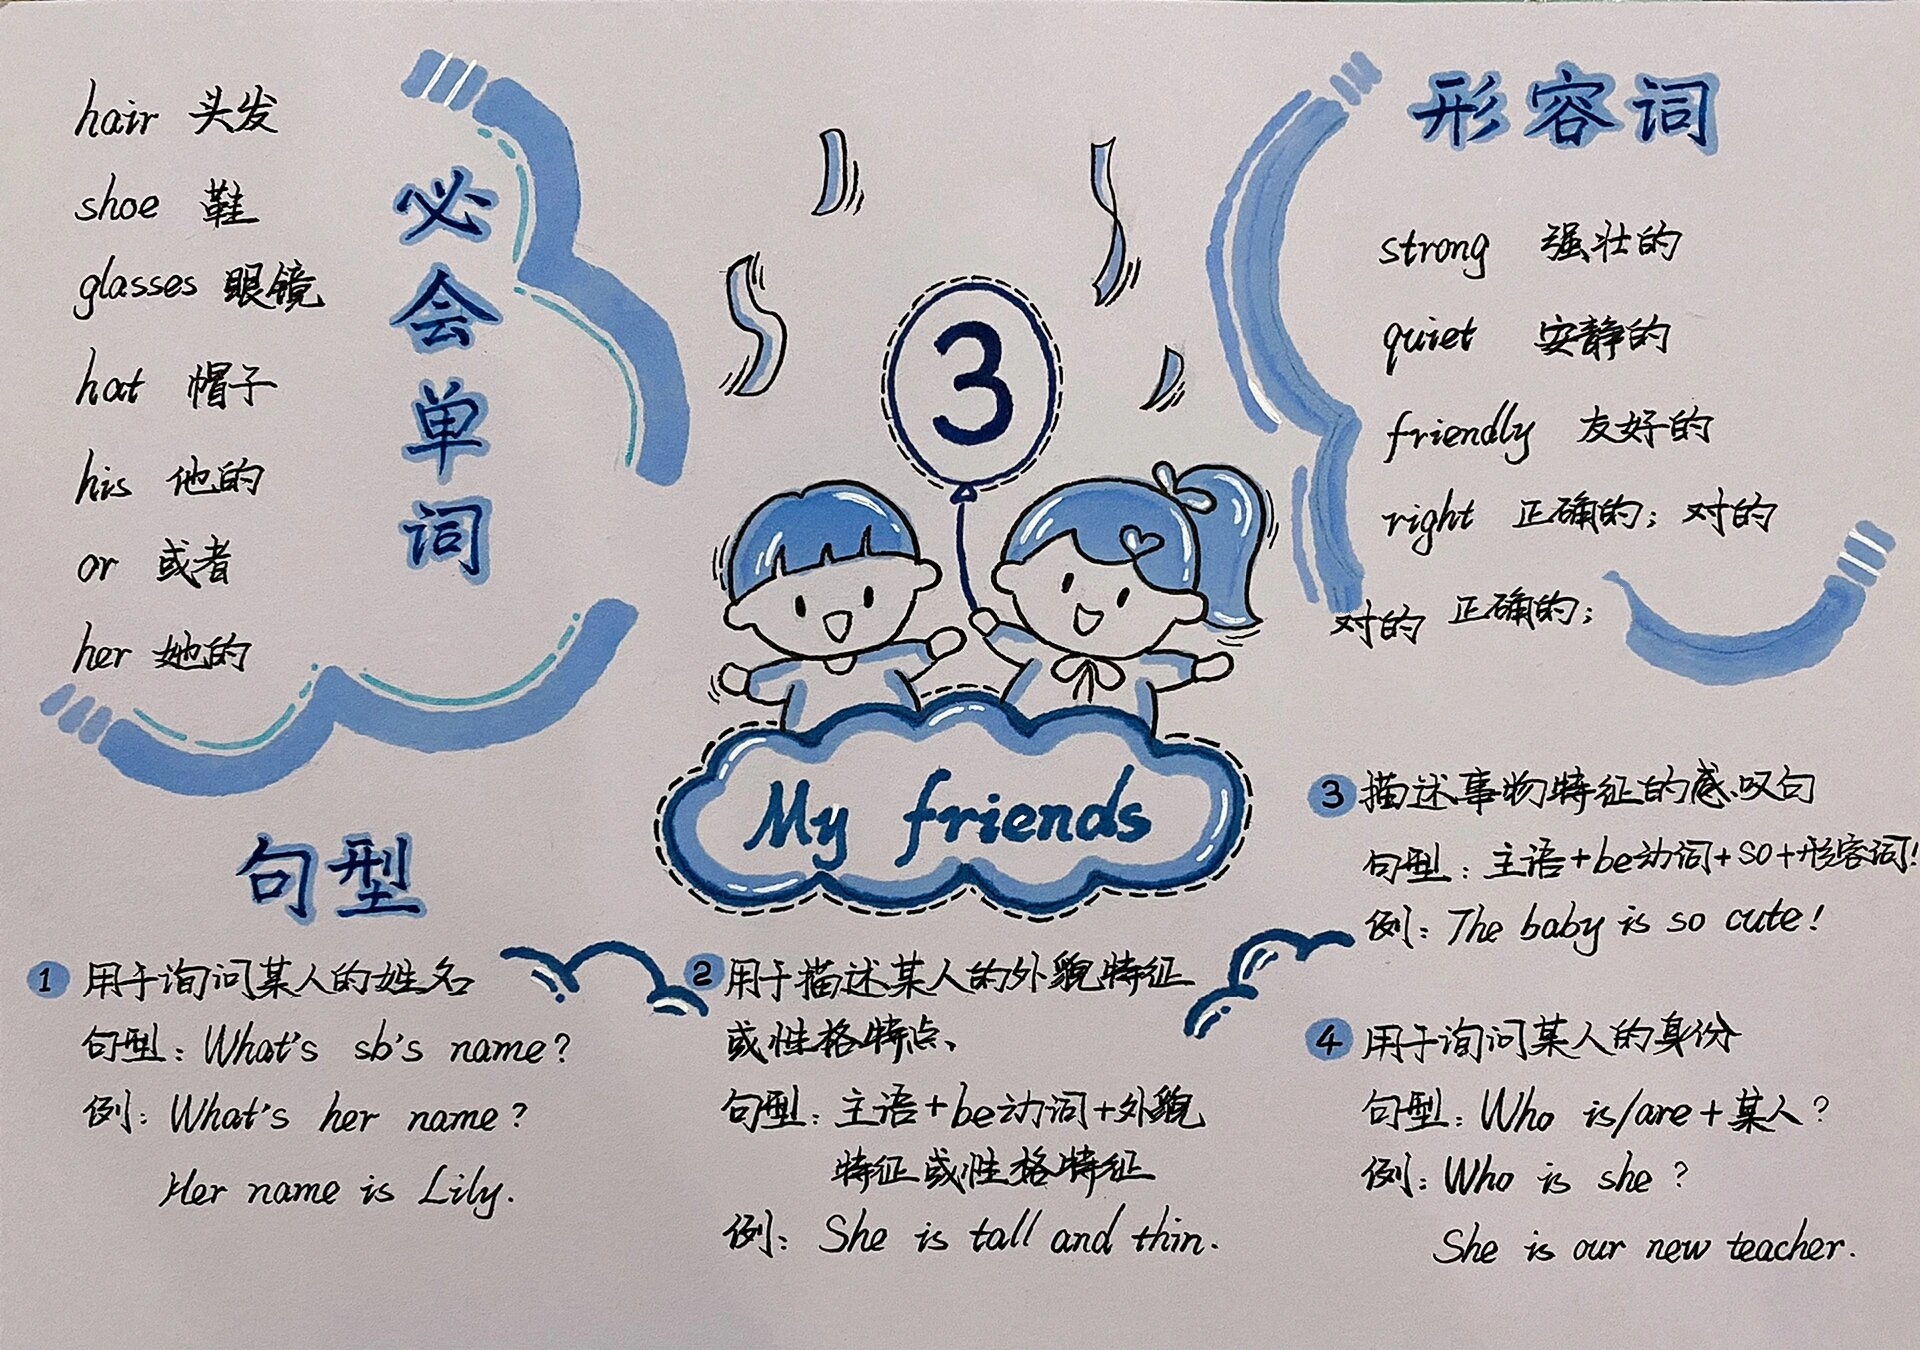 必会单词
hair 头发
shoe 鞋
glasses 眼镜
hat 帽子
his 他的
or 或者
her 她的
3
My friends
形容词
strong 强壮的
quiet 安静的
friendly 友好的
right 正确的；对的
对的 正确的；
句型
1 用于询问某人的姓名
句型：What's sb's name?
例：What's her name?
Her name is Lily.
2 用于描述某人的外貌特征
或性格特点、
句型：主语+be动词+外貌
特征或性格特征
例：She is tall and thin.
3 描述事物特征的感叹句
句型：主语+be动词+so+形容词!
例：The baby is so cute!
4 用于询问某人的身份
句型：Who is/are+某人?
例：Who is she?
She is our new teacher.